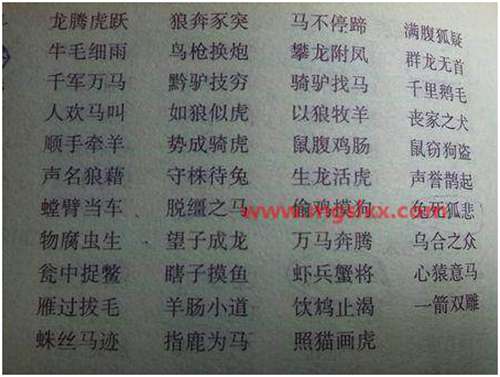 龙腾虎跃 狼奔豕突 马不停蹄 满腹狐疑
牛毛细雨 鸟枪换炮 攀龙附凤 群龙无首
千军万马 黔驴技穷 骑驴找马 千里鹅毛
人欢马叫 如狼似虎 以狼牧羊 丧家之犬
顺手牵羊 势成骑虎 鼠腹鸡肠 鼠窃狗盗
声名狼藉 守株待兔 生龙活虎 声誉鹊起
螳臂当车 脱缰之马 偷鸡摸狗 兔死狐悲
www.mgslxx.com
物腐虫生 望子成龙 万马奔腾 乌合之众
瓮中捉鳖 瞎子摸鱼 虾兵蟹将 心猿意马
雁过拔毛 羊肠小道 饮鸩止渴 一箭双雕
蛛丝马迹 指鹿为马 照猫画虎